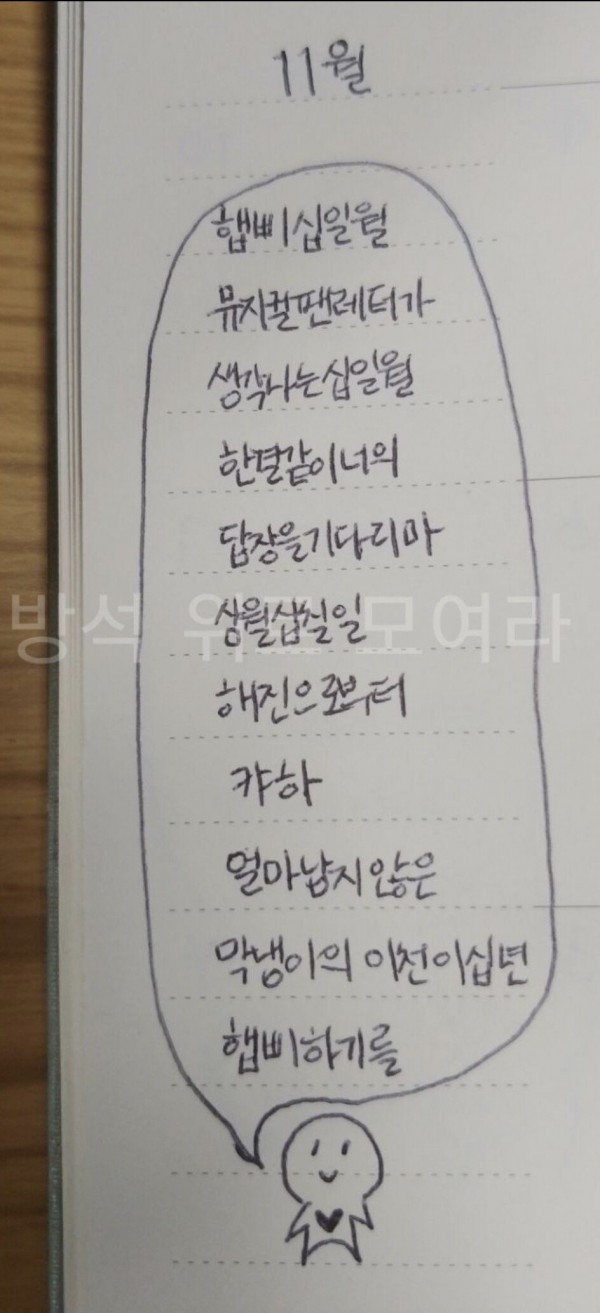 11월
햅삐 십일월
뮤지컬팬레터가
생각나는십일월
한결같이너의
답장을기다리마
방석 모여라
해진으로부터
캬하
얼마남지않은
막냉이의 이천이십년
햅삐하기를